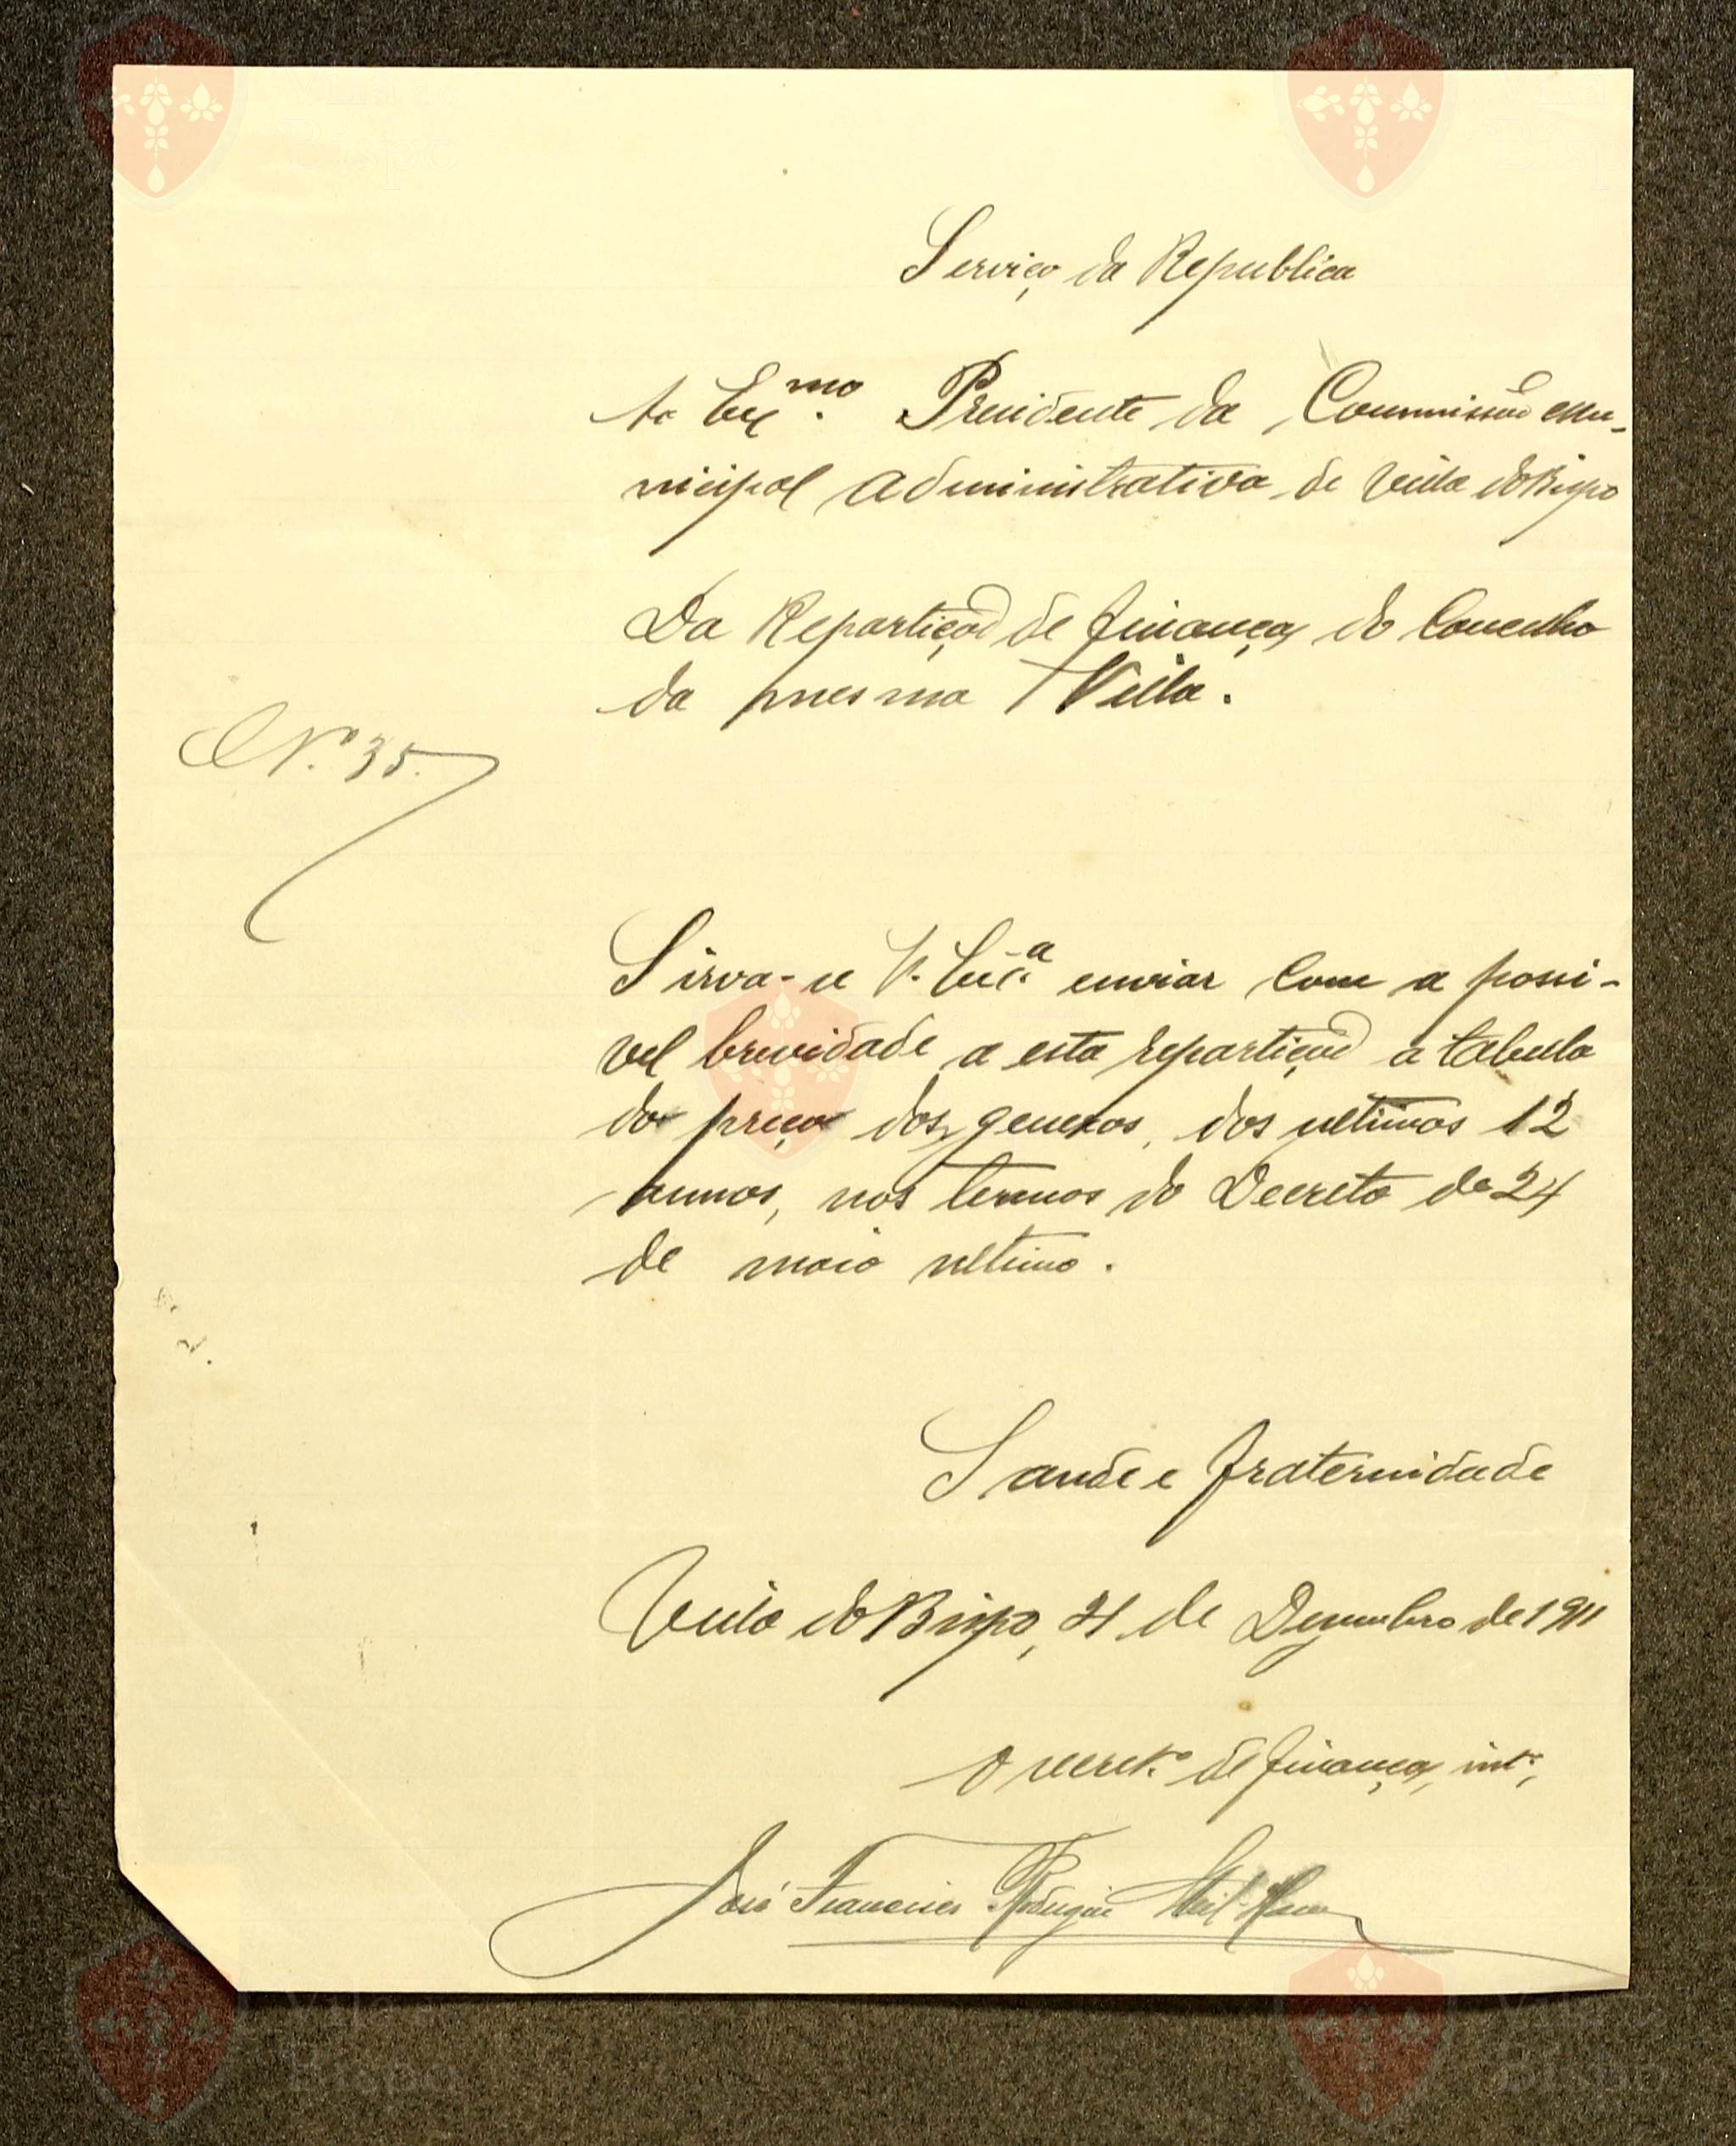 Serviço da Republica
Ao Ex.mo Presidente da Commissão Mu-
nicipal Administrativa de Villa do Bispo
Da Repartição de finanças do Concelho
da mesma Villa.
N.º 35.
Sirva-se V. Exc.ª enviar com a possi-
vel brevidade a esta repartição a tabella
do preço dos generos, dos ultimos 12
annos, nos termos do Decreto de 24
de maio ultimo.
Saude e fraternidade
Villa do Bispo, 21 de Dezembro de 1911
O secret.º de finanças, int.º,
José Francisco Rodrigues